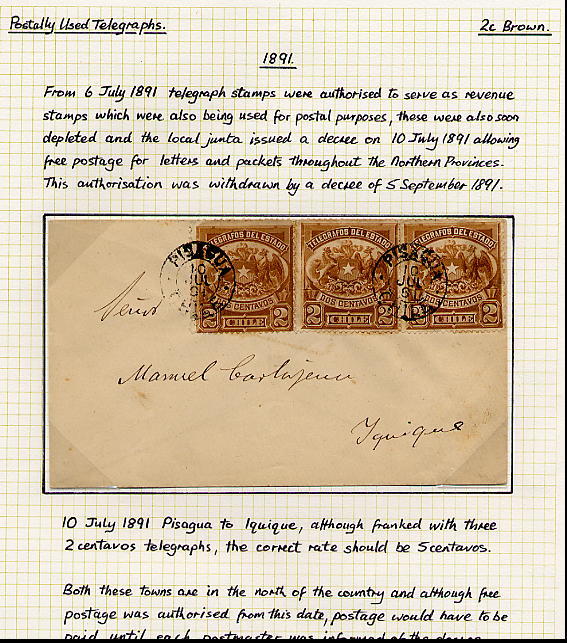 Postally Used Telegraphs. 2c Brown.
1891.
From 6 July 1891 telegraph stamps were authorised to serve as revenue
stamps which were also being used for postal purposes, these were also soon
depleted and the local junta issued a decree on 10 July 1891 allowing
free postage for letters and packets throughout the Northern Provinces.
This authorisation was withdrawn by a decree of 5 September 1891.
TELEGRAFOS DEL ESTADO TELEGRAFOS DEL ESTADO TELEGRAFOS DEL ESTADO
PISAGUA PISAGUA
10 10
JUL JUL
91 91
DOS CENTAVOS DOS CENTAVOS DOS CENTAVOS
2 CHILE 2 2 CHILE 2 2 CHILE 2
Señor
Manuel
Iquique
10 July 1891 Pisagua to Iquique, although franked with three
2 centavos telegraphs, the correct rate should be 5 centavos.
Both these towns are in the north of the country and although free
postage was authorised from this date, postage would have to be
paid until each postmaster was informed of the decree